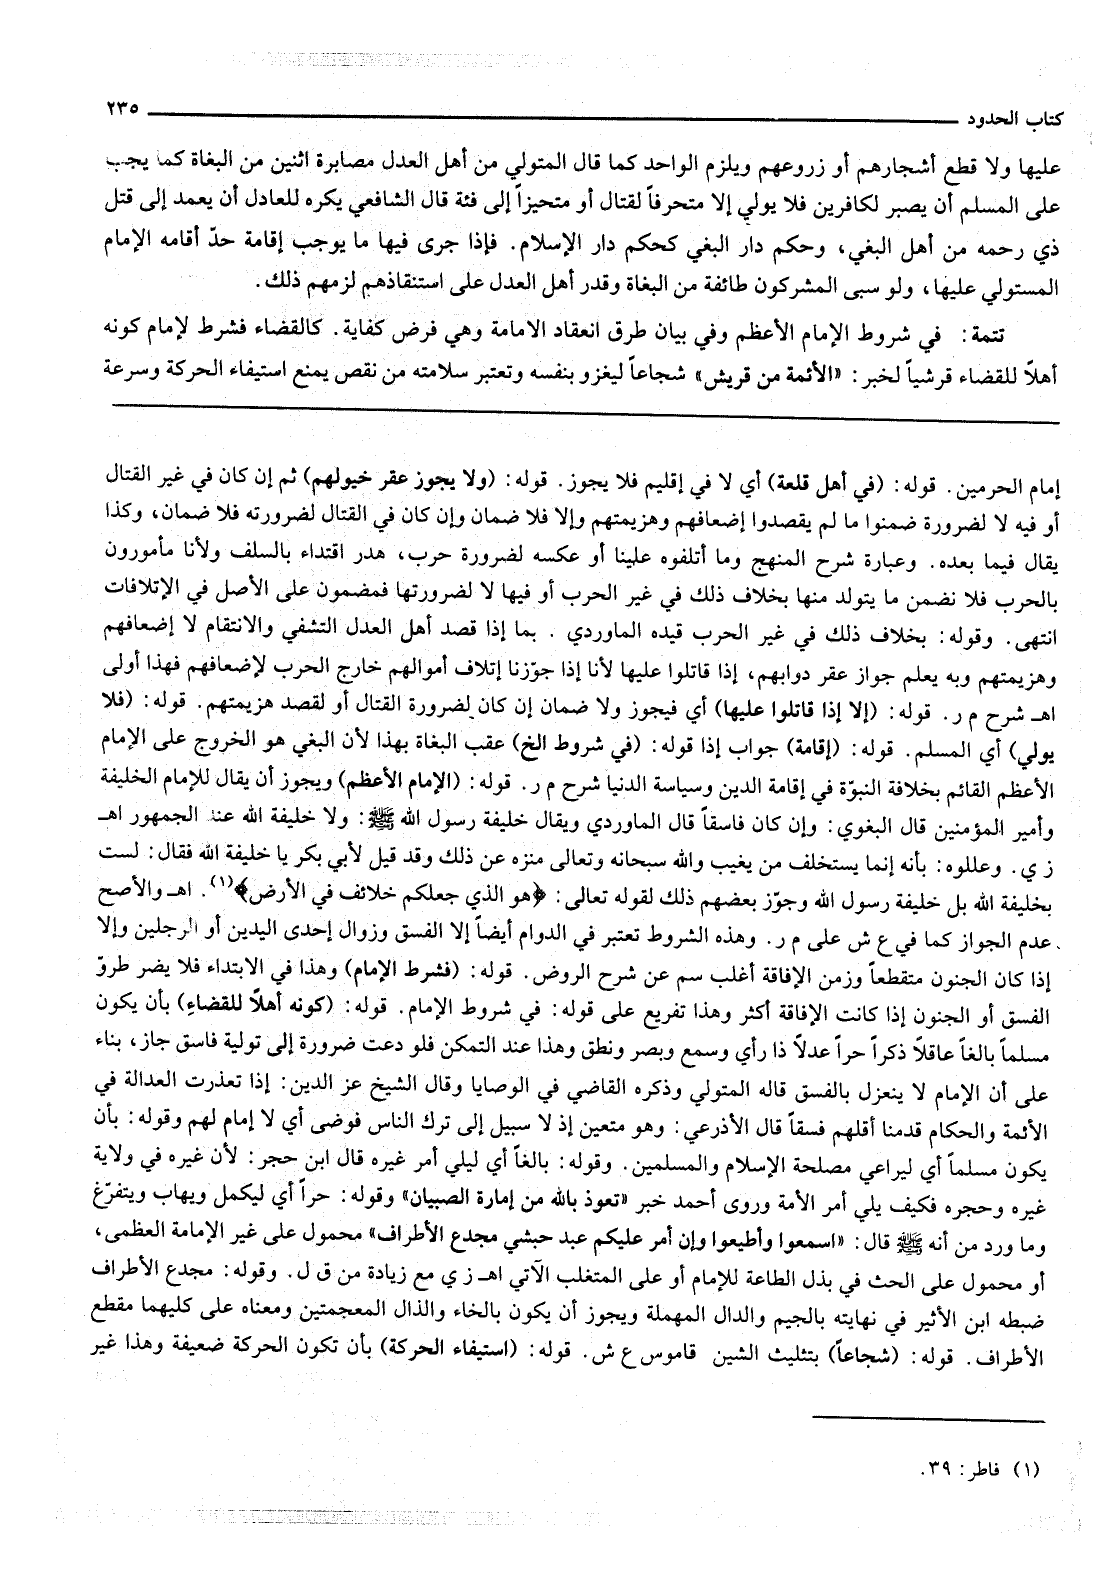 كتاب الحدود ٢٣٥
عليها ولا قطع أشجارهم أو زروعهم ويلزم الواحد كما قال المتولي من أهل العدل مصابرة اثنين من البغاة كما يجب
على المسلم أن يصبر لكافرين فلا يولي إلا متحرفاً لقتال أو متحيزاً إلى فئة قال الشافعي يكره للعادل أن يعمد إلى قتل
ذي رحمه من أهل البغي، وحكم دار البغي كحكم دار الإسلام. فإذا جرى فيها ما يوجب إقامة حدّ أقامه الإمام
المستولي عليها، ولو سبى المشركون طائفة من البغاة وقدر أهل العدل على استنقاذهم لزمهم ذلك.
تتمة: في شروط الإمام الأعظم وفي بيان طرق انعقاد الامامة وهي فرض كفاية. كالقضاء فشرط لإمام كونه
أهلاً للقضاء قرشياً لخبر: «الأئمة من قريش» شجاعاً ليغزو بنفسه وتعتبر سلامته من نقص يمنع استيفاء الحركة وسرعة
إمام الحرمين. قوله: (في أهل قلعة) أي لا في إقليم فلا يجوز. قوله: (ولا يجوز عقر خيولهم) ثم إن كان في غير القتال
أو فيه لا لضرورة ضمنوا ما لم يقصدوا إضعافهم وهزيمتهم وإلا فلا ضمان وإن كان في القتال لضرورته فلا ضمان، وكذا
يقال فيما بعده. وعبارة شرح المنهج وما أتلفوه علينا أو عكسه لضرورة حرب، هدر اقتداء بالسلف ولأنا مأمورون
بالحرب فلا نضمن ما يتولد منها بخلاف ذلك في غير الحرب أو فيها لا لضرورتها فمضمون على الأصل في الإتلافات
انتهى. وقوله: بخلاف ذلك في غير الحرب قيده الماوردي . بما إذا قصد أهل العدل التشفي والانتقام لا إضعافهم
وهزيمتهم وبه يعلم جواز عقر دوابهم، إذا قاتلوا عليها لأنا إذا جوّزنا إتلاف أموالهم خارج الحرب لإضعافهم فهذا أولى
اهـ شرح م ر. قوله: (إلا إذا قاتلوا عليها) أي فيجوز ولا ضمان إن كان لضرورة القتال أو لقصد هزيمتهم. قوله: (فلا
يولي) أي المسلم. قوله: (إقامة) جواب إذا قوله: (في شروط الخ) عقب البغاة بهذا لأن البغي هو الخروج على الإمام
الأعظم القائم بخلافة النبوّة في إقامة الدين وسياسة الدنيا شرح م ر. قوله: (الإمام الأعظم) ويجوز أن يقال للإمام الخليفة
وأمير المؤمنين قال البغوي: وإن كان فاسقاً قال الماوردي ويقال خليفة رسول الله ﷺ: ولا خليفة الله عند الجمهور اهـ
ز ي. وعللوه: بأنه إنما يستخلف من يغيب والله سبحانه وتعالى منزه عن ذلك وقد قيل لأبي بكر يا خليفة الله فقال: لست
بخليفة الله بل خليفة رسول الله وجوّز بعضهم ذلك لقوله تعالى: ﴿هو الذي جعلكم خلائف في الأرض﴾(١). اهـ والأصح
عدم الجواز كما في ع ش على م ر. وهذه الشروط تعتبر في الدوام أيضاً إلا الفسق وزوال إحدى اليدين أو الرجلين وإلا
إذا كان الجنون متقطعاً وزمن الإفاقة أغلب سم عن شرح الروض. قوله: (فشرط الإمام) وهذا في الابتداء فلا يضر طروّ
الفسق أو الجنون إذا كانت الإفاقة أكثر وهذا تفريع على قوله: في شروط الإمام. قوله: (كونه أهلاً للقضاء) بأن يكون
مسلماً بالغاً عاقلاً ذكراً حراً عدلاً ذا رأي وسمع وبصر ونطق وهذا عند التمكن فلو دعت ضرورة إلى تولية فاسق جاز، بناء
على أن الإمام لا ينعزل بالفسق قاله المتولي وذكره القاضي في الوصايا وقال الشيخ عز الدين: إذا تعذرت العدالة في
الأئمة والحكام قدمنا أقلهم فسقاً قال الأذرعي: وهو متعين إذ لا سبيل إلى ترك الناس فوضى أي لا إمام لهم وقوله: بأن
يكون مسلماً أي ليراعي مصلحة الإسلام والمسلمين. وقوله: بالغاً أي ليلي أمر غيره قال ابن حجر: لأن غيره في ولاية
غيره وحجره فكيف يلي أمر الأمة وروى أحمد خبر «تعوذ بالله من إمارة الصبيان» وقوله: حراً أي ليكمل ويهاب ويتفرّغ
وما ورد من أنه ﷺ قال: «اسمعوا وأطيعوا وإن أمر عليكم عبد حبشي مجدع الأطراف» محمول على غير الإمامة العظمى،
أو محمول على الحث في بذل الطاعة للإمام أو على المتغلب الآتي اهـ ز ي مع زيادة من ق ل. وقوله: مجدع الأطراف
ضبطه ابن الأثير في نهايته بالجيم والدال المهملة ويجوز أن يكون بالخاء والذال المعجمتين ومعناه على كليهما مقطع
الأطراف. قوله: (شجاعاً) بتثليث الشين قاموس ع ش. قوله: (استيفاء الحركة) بأن تكون الحركة ضعيفة وهذا غير
(١) فاطر: ٣٩.